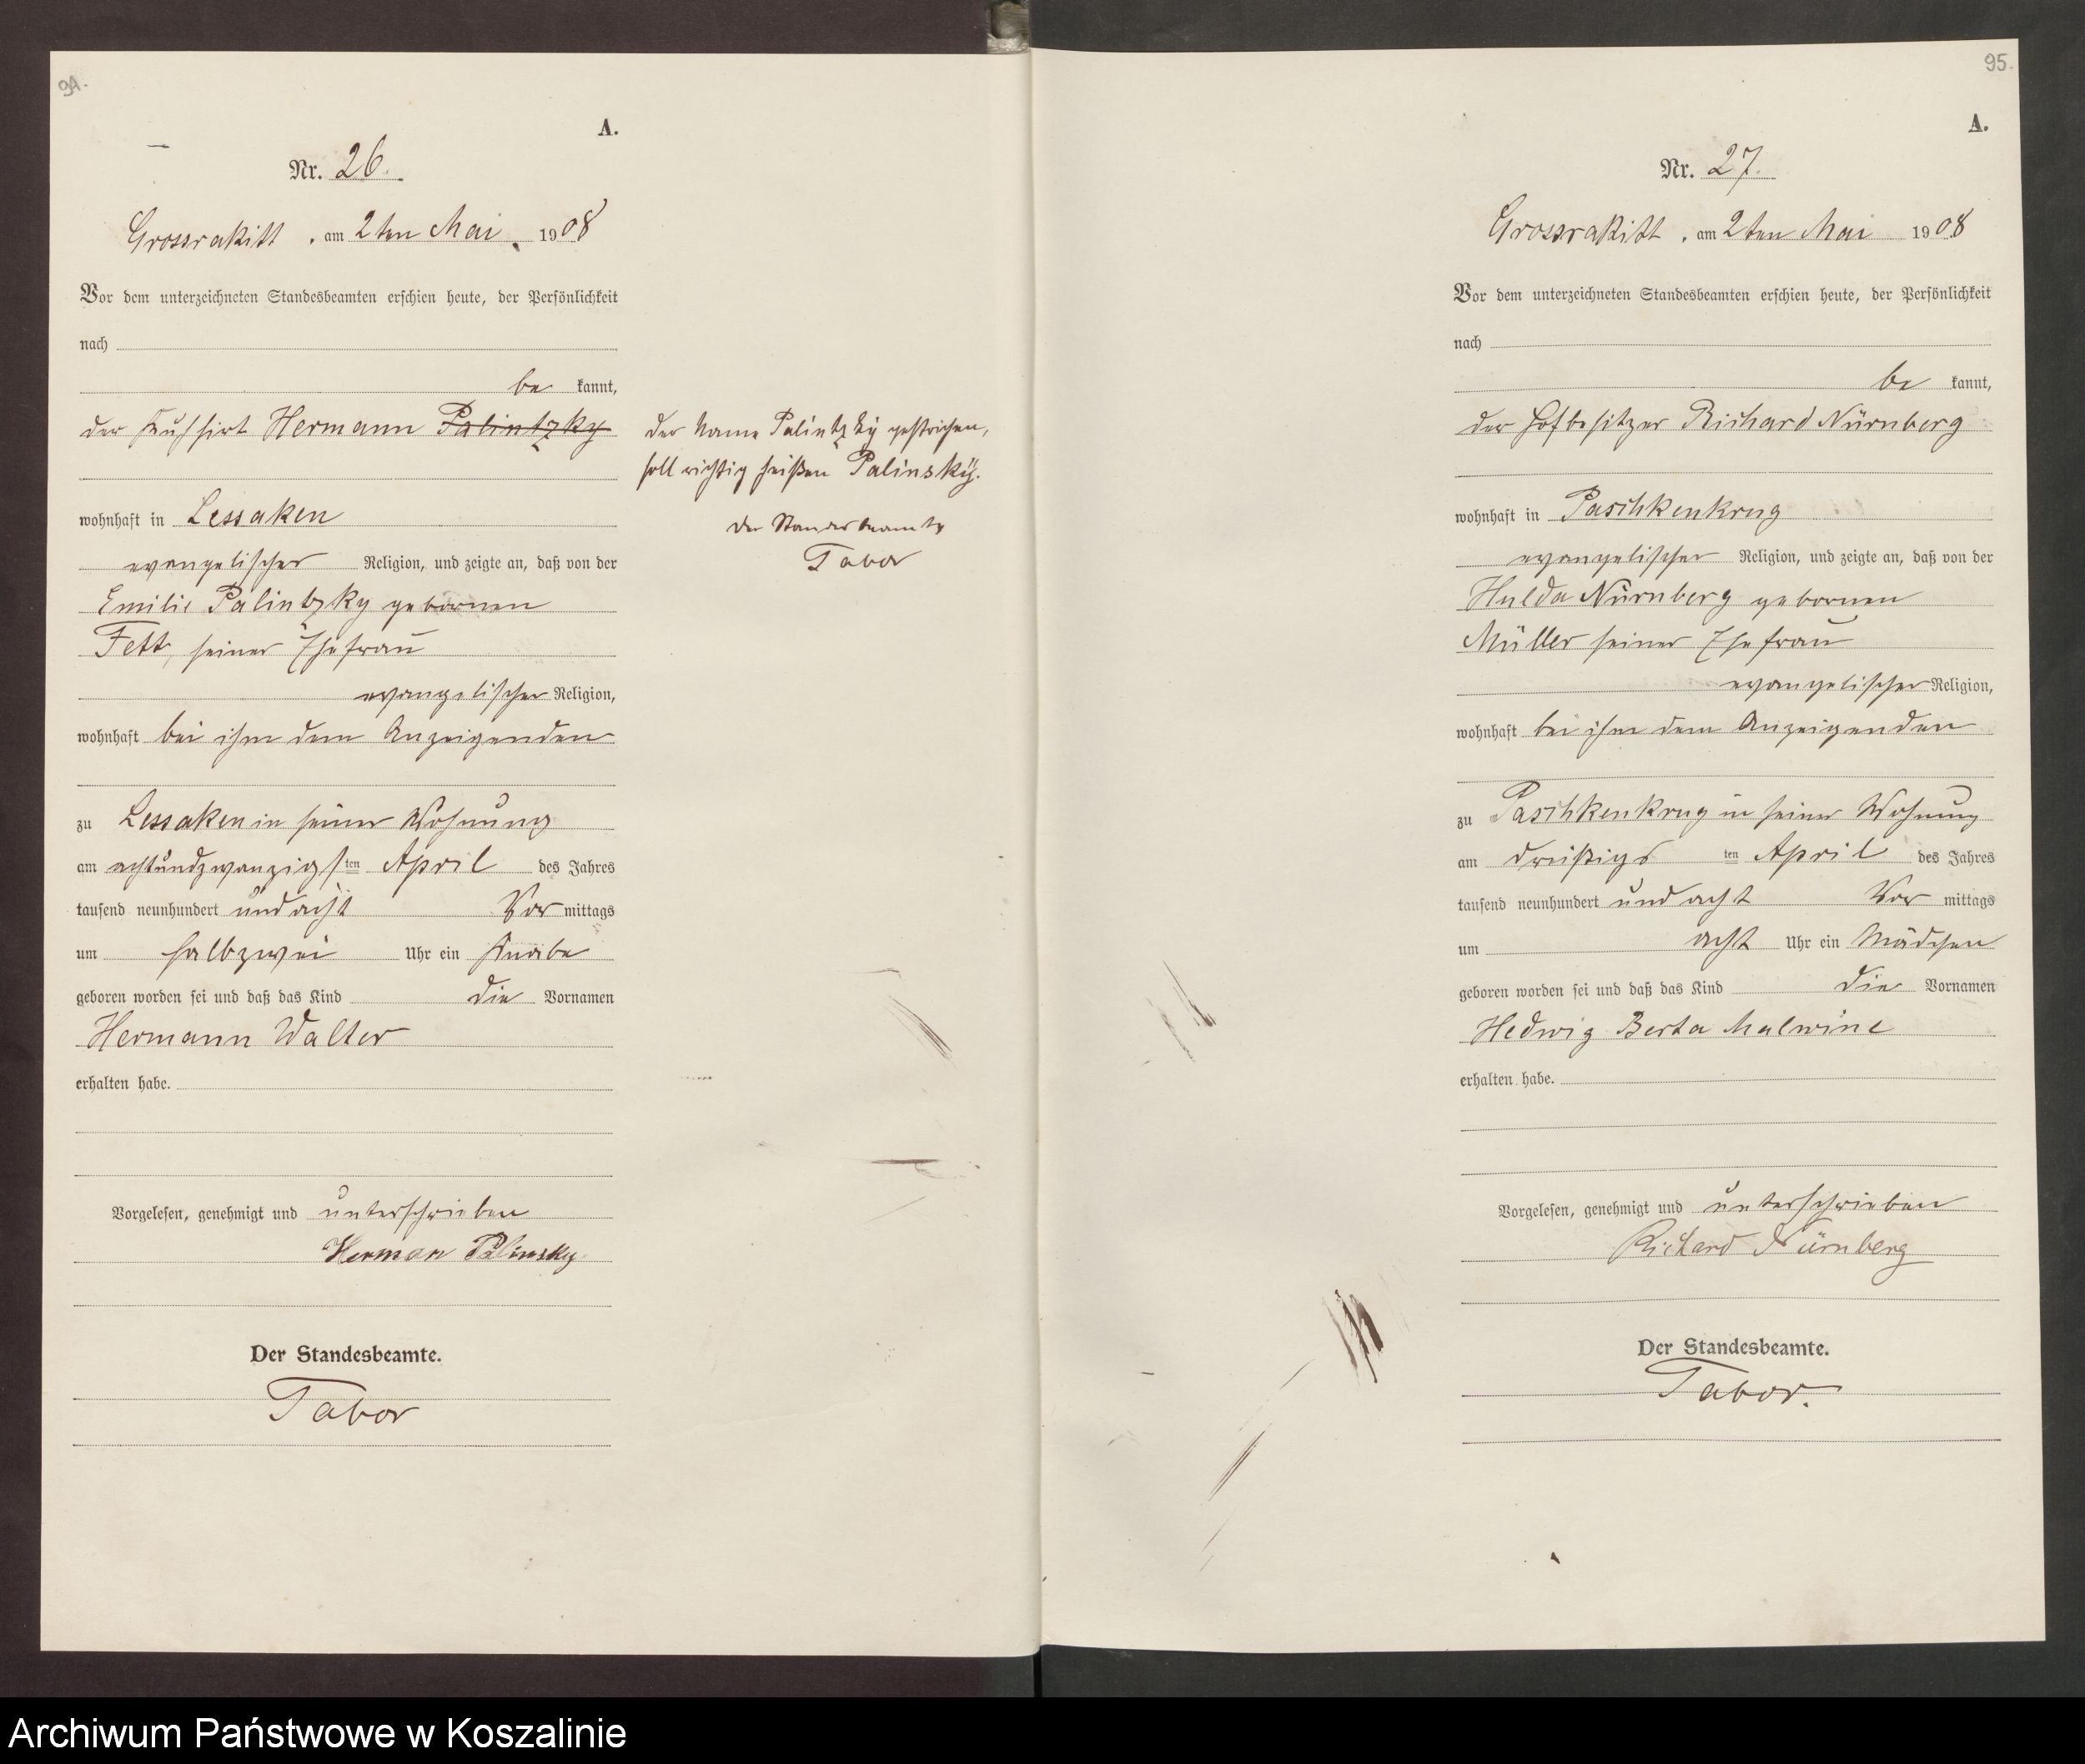 94.
A.
Nr. 26.
Grossrakitt, am 2ten Mai 1908
Vor dem unterzeichneten Standesbeamten erschien heute, der Persönlichkeit
nach
be kannt,
der Kuhhirt Hermann Palintzky
wohnhaft in Lessaken
evangelischer Religion, und zeigte an, daß von der
Emilie Palintzky gebornen
Fett, seiner Ehefrau
evangelischer Religion,
wohnhaft bei ihm dem Anzeigenden
zu Lessaken in seiner Wohnung
am achtundzwanzigsten April des Jahres
tausend neunhundert und acht Vor mittags
um halbzwei Uhr ein Knabe
geboren worden sei und daß das Kind die Vornamen
Hermann Walter
erhalten habe.
Vorgelesen, genehmigt und unterschrieben
Herman Palinsky
Der Standesbeamte.
Tabor
der Name Palintzky gestrichen,
soll richtig heißen Palinsky.
Der Standesbeamte
Tabor
95.
A.
Nr. 27.
Grossrakitt, am 2ten Mai 1908
Vor dem unterzeichneten Standesbeamten erschien heute, der Persönlichkeit
nach
be kannt,
der Hofbesitzer Richard Nürnberg
wohnhaft in Paschkenkrug
evangelischer Religion, und zeigte an, daß von der
Hulda Nürnberg gebornen
Müller seiner Ehefrau
evangelischer Religion,
wohnhaft bei ihm dem Anzeigenden
zu Paschkenkrug in seiner Wohnung
am dreißigsten April des Jahres
tausend neunhundert und acht Vor mittags
um acht Uhr ein Mädchen
geboren worden sei und daß das Kind die Vornamen
Hedwig Berta Malwine
erhalten habe.
Vorgelesen, genehmigt und unterschrieben
Richard Nürnberg
Der Standesbeamte.
Tabor.
Archiwum Państwowe w Koszalinie